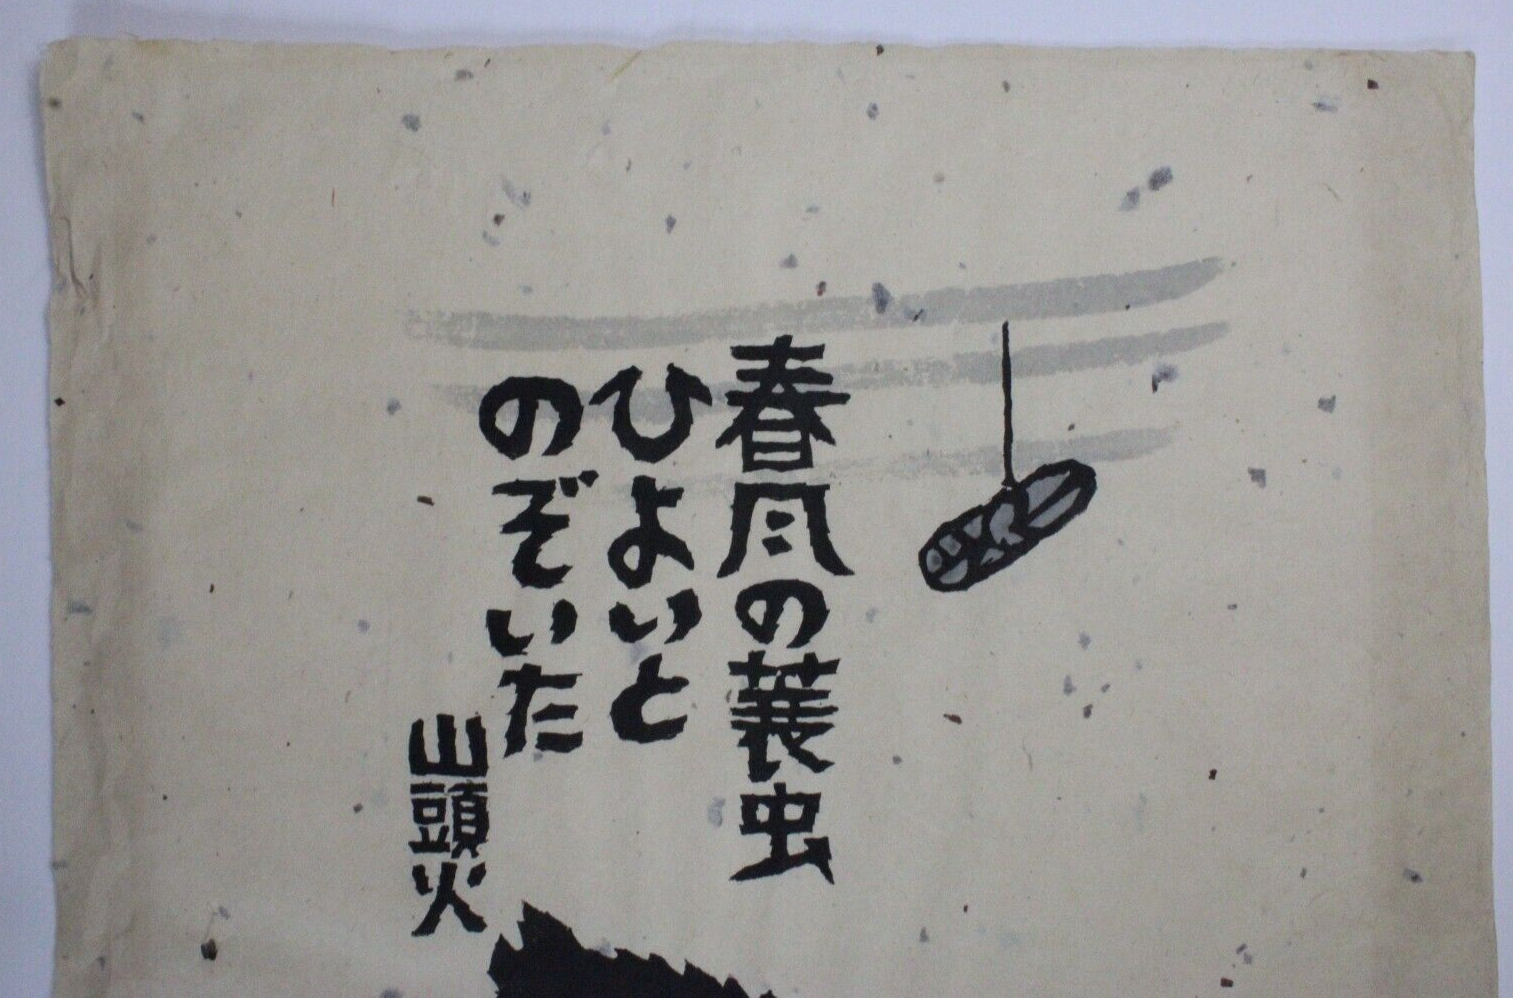 春风の蓑虫
ひよいと
のぞいた
山頭火